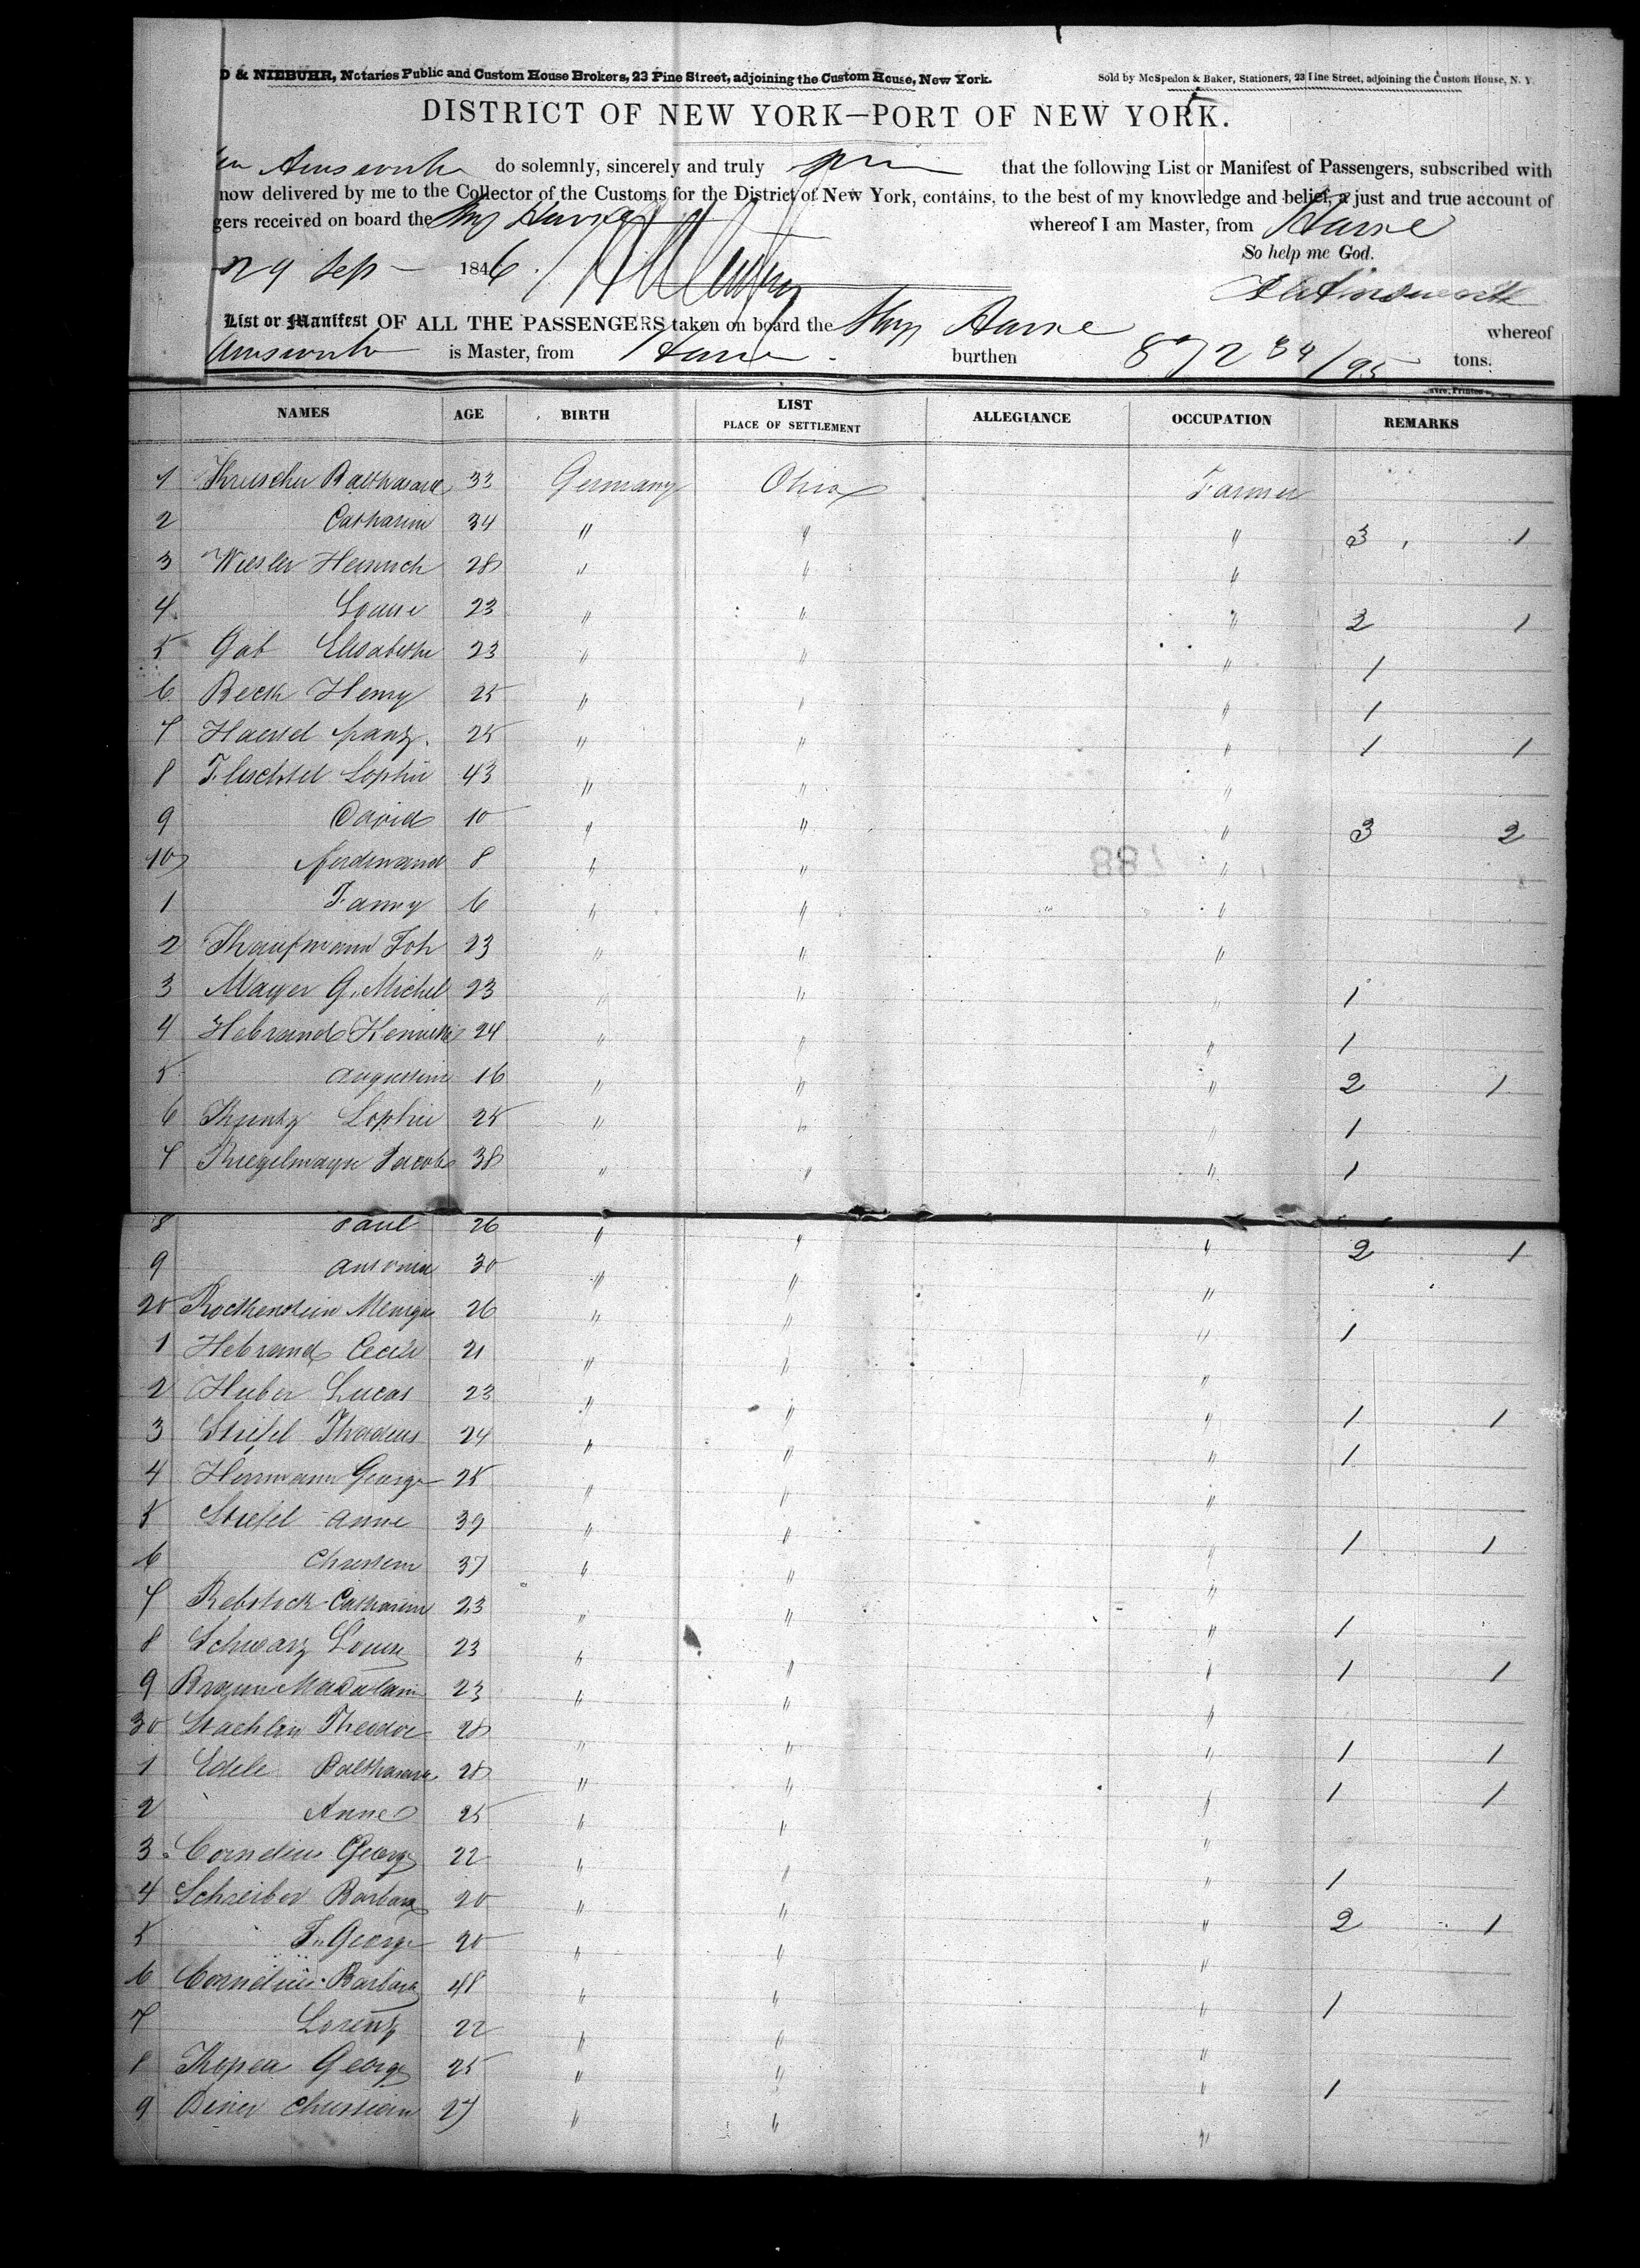 D & NIEBUHR, Notaries Public and Custom House Brokers, 23 Pine Street, adjoining the Custom House, New York.
Sold by McSpedon & Baker, Stationers, 23 Pine Street, adjoining the Custom House, N. Y.
DISTRICT OF NEW YORK—PORT OF NEW YORK.
Ainsworth do solemnly, sincerely and truly that the following List or Manifest of Passengers, subscribed with
now delivered by me to the Collector of the Customs for the District of New York, contains, to the best of my knowledge and belief, a just and true account of
gers received on board the Ship Havre whereof I am Master, from Havre
So help me God.
29 Sep 1846.
Ainsworth
List or Manifest OF ALL THE PASSENGERS taken on board the Ship Havre whereof
Ainsworth is Master, from Havre burthen 872 34/95 tons.
NAMES AGE BIRTH LIST PLACE OF SETTLEMENT ALLEGIANCE OCCUPATION REMARKS
1 Balthasard 33 Germany Ohio Farmer
2 Catharine 34 " " " 3 1
3 Wiesler Heinrich 28 " " "
4 Louise 23 " " " 2 1
5 Gab Elisabethe 23 " " " 1
6 Beck Henry 25 " " " 1
7 Franz 25 " " " 1 1
8 Sophie 43 " " "
9 David 10 " " " 3 2
10 Ferdinand 8 " " "
788
1 Fanny 6 " " "
2 Joh 23 " " "
3 Mayer G. Michel 23 " " " 1
4 Hebrand 24 " " " 1
5 Augustine 16 " " " 2 1
6 Sophie 25 " " " 1
7 Jacob 38 " " " 1
8 Paul 26 " " " 2 1
9 Antoine 30 " " "
20 26 " " " 1
1 Hebrand Cecile 21 " " "
2 Huber Lucas 23 " " " 1 1
3 Stiefel Thadeus 24 " " " 1
4 Herrmann George 25 " " "
5 Stiefel Anne 39 " " " 1 1
6 37 " " "
7 Rebstock Catharine 23 " " " 1
8 Schwarz Louise 23 " " " 1 1
9 Braun Madalaine 23 " " "
30 Staehlin Theodor 28 " " " 1 1
1 Edele Balthasard 28 " " " 1 1
2 Anne 25 " " "
3 Cornelius George 22 " " " 1
4 Schreiber Barbara 20 " " " 2 1
5 F. George 20 " " "
6 Cornelius Barbara 48 " " " 1
7 Lorenz 22 " " "
8 George 25 " " " 1
9 Christian 27 " " "